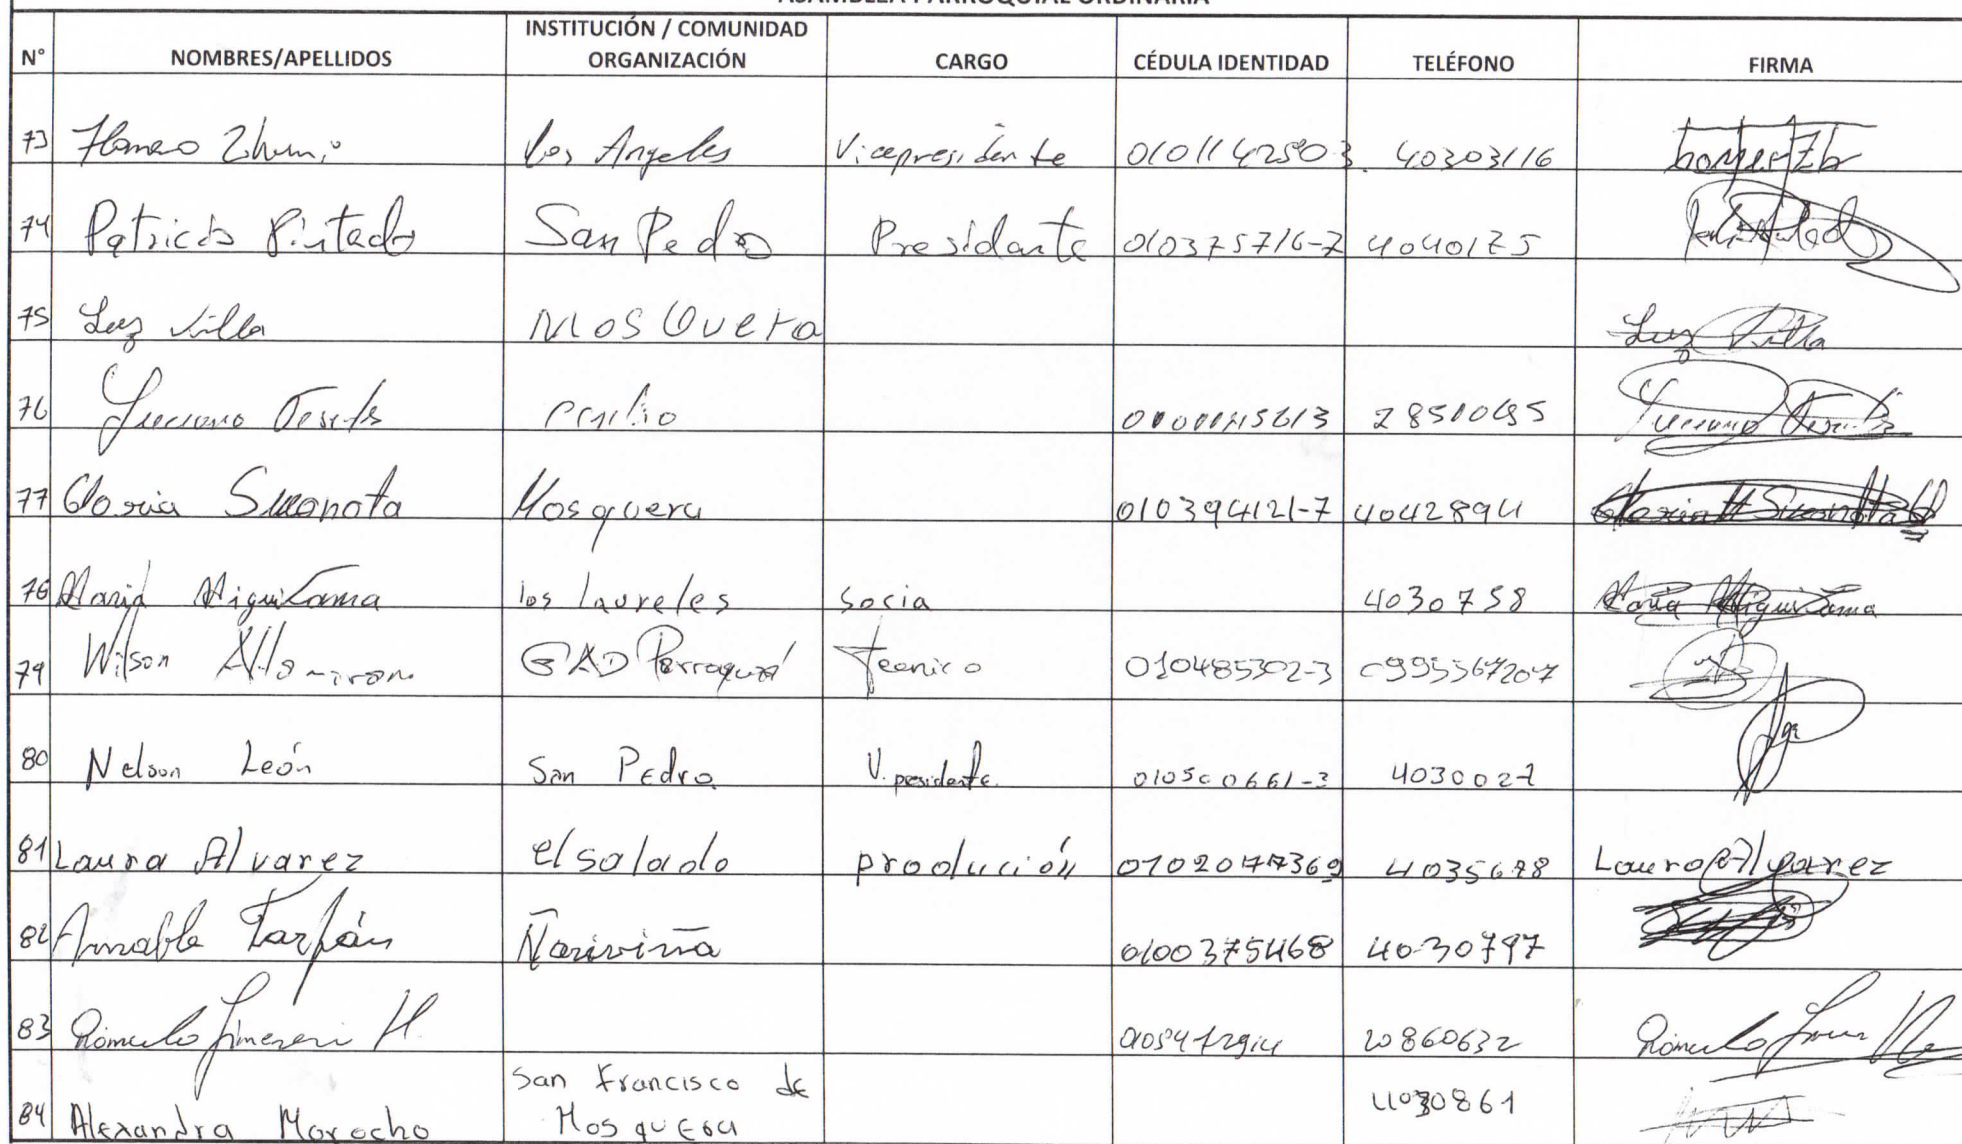 ASAMBLEA PARROQUIAL ORDINARIA
N° NOMBRES/APELLIDOS INSTITUCIÓN / COMUNIDAD ORGANIZACIÓN CARGO CÉDULA IDENTIDAD TELÉFONO FIRMA
73 Los Angeles Vicepresidente 0101142503 40303116
74 Patricio Pintado San Pedro Presidante 010375716-7 4040175
75 Luz Villa MOSQUERA Luz Villa
76 Luciano 28510695 Luciano
77 Gloria Sucanota Mosquera 010394121-7 4042894
78 Maria Miguitama los laureles socia 4030758 Maria Miguitama
79 Wilson Altamirano GAD Parroquial Tecnico 010485302-3 0995367207
80 Nelson León San Pedro V. presidente 010500661-3 4030027
81 Laura Alvarez el salado produción 0102077369 4035678 Laura Alvarez
82 Amable Farfán Ñariviña 0100375468 4030797
83 Rómulo H. 20860632 Rómulo
84 Alexandra Morocho San Francisco de Mosquera 4030861